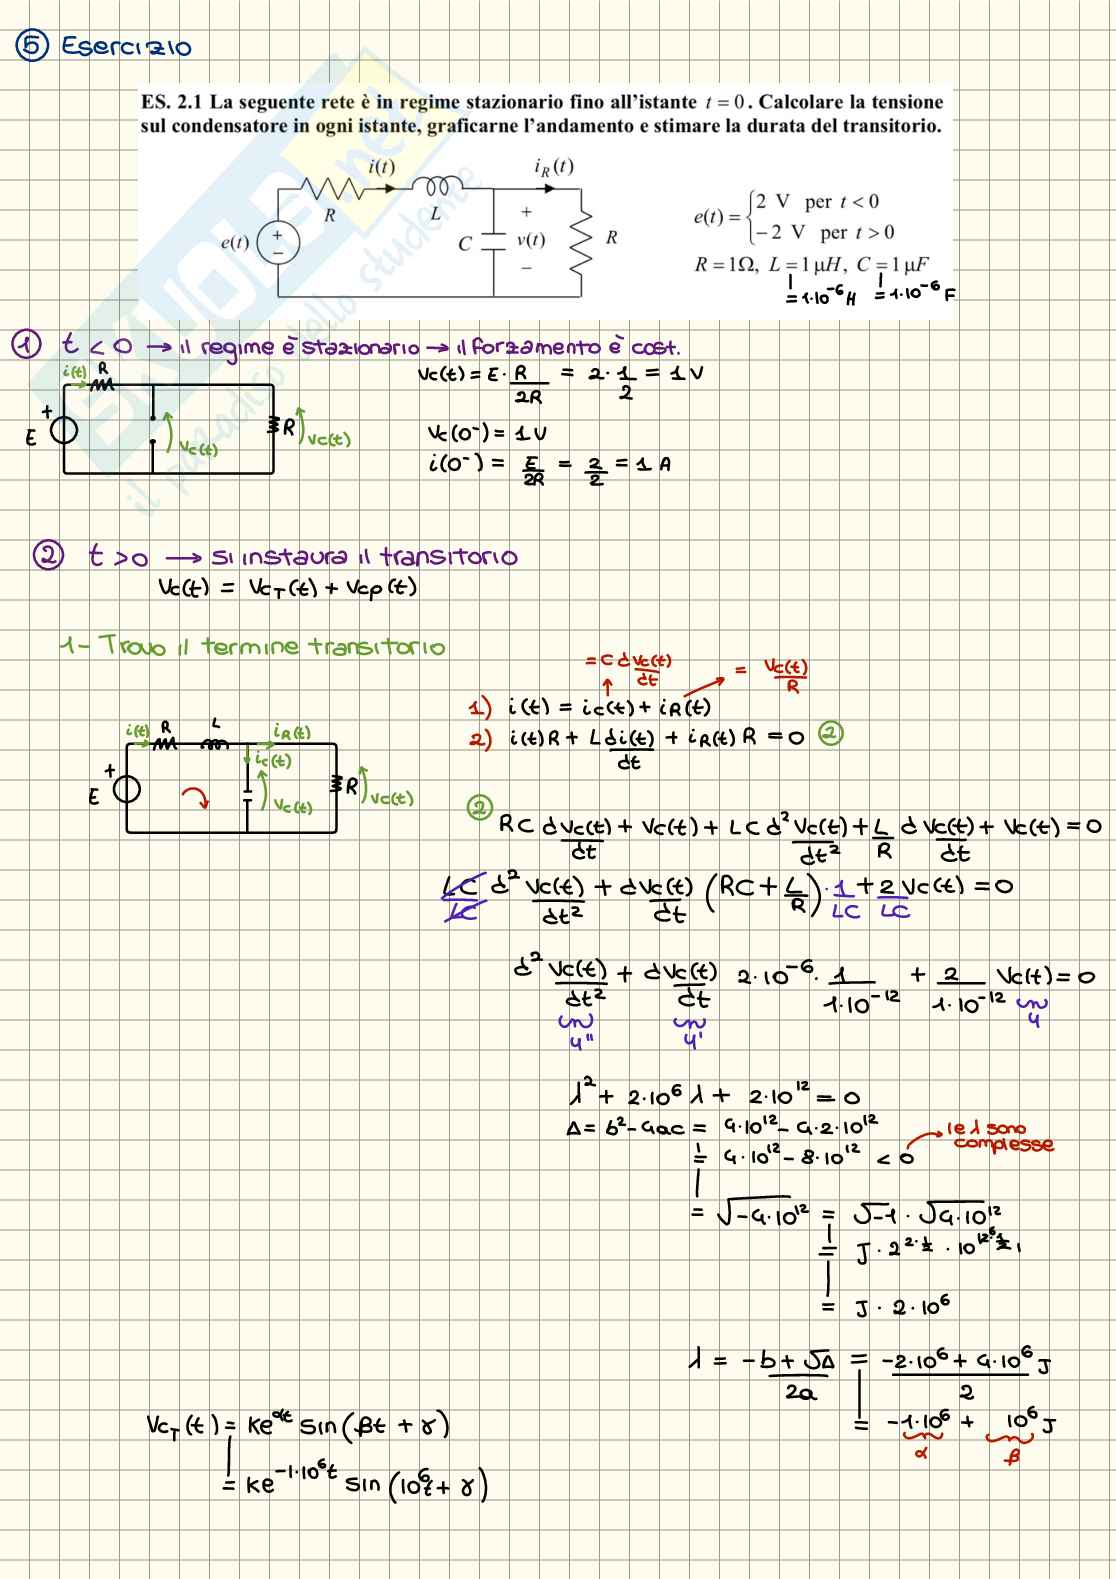 5 Esercizio
ES. 2.1 La seguente rete è in regime stazionario fino all'istante t = 0. Calcolare la tensione
sul condensatore in ogni istante, graficarne l'andamento e stimare la durata del transitorio.
i(t) i_R(t)
R L
e(t) + − C + v(t) − R
e(t) = { 2 V per t < 0
−2 V per t > 0
R = 1Ω, L = 1 μH, C = 1 μF
= 1·10⁻⁶ H = 1·10⁻⁶ F
SKUOLA.net
il paradiso dello studente
1 t < 0 → il regime è stazionario → il forzamento è cost.
i(t) R
+ E Vc(t) R Vc(t)
Vc(t) = E · R/2R = 2 · 1/2 = 1 V
Vc(0⁻) = 1 V
i(0⁻) = E/2R = 2/2 = 1 A
2 t > 0 → si instaura il transitorio
Vc(t) = Vc_T(t) + Vcp(t)
1- Trovo il termine transitorio
= C dVc(t)/dt = Vc(t)/R
1) i(t) = ic(t) + iR(t)
2) i(t)R + L di(t)/dt + iR(t) R = 0 2
i(t) R L iR(t)
ic(t)
+ E Vc(t) R Vc(t)
2 RC dVc(t)/dt + Vc(t) + LC d² Vc(t)/dt² + L/R dVc(t)/dt + Vc(t) = 0
LC/LC d² Vc(t)/dt² + dVc(t)/dt (RC + L/R) · 1/LC + 2/LC Vc(t) = 0
d² Vc(t)/dt² + dVc(t)/dt 2·10⁻⁶ · 1/1·10⁻¹² + 2/1·10⁻¹² Vc(t) = 0
y'' y' y
λ² + 2·10⁶ λ + 2·10¹² = 0
Δ = b² - 4ac = 4·10¹² - 4·2·10¹²
= 4·10¹² - 8·10¹² < 0 → le λ sono complesse
= √-4·10¹² = √-1 · √4·10¹²
= J · 2^(2·1/2) · 10^(12·1/2)
= J · 2·10⁶
λ = -b + √Δ/2a = -2·10⁶ + 4·10⁶ J/2
= -1·10⁶ + 10⁶ J
α β
Vc_T(t) = ke^(αt) sin(βt + γ)
= ke^(-1·10⁶t) sin(10⁶t + γ)